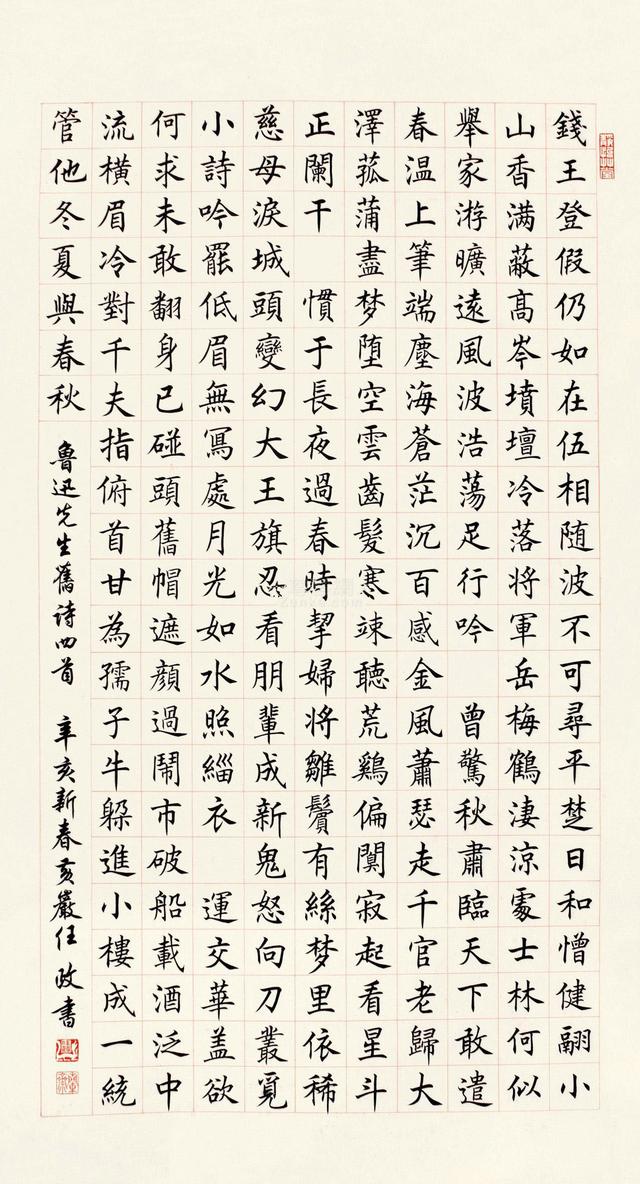 錢王登假仍如在伍相随波不可尋平楚日和憎健翮小
山香满蔽高岑墳壇冷落将軍岳梅鶴淒涼處士林何似
舉家游曠遠風波浩蕩足行吟 曾驚秋肅臨天下敢遣
春温上筆端塵海蒼茫沉百感金風蕭瑟走千官老歸大
澤菰蒲盡梦堕空雲齒髮寒竦聽荒鷄偏闃寂起看星斗
正闌干 慣于長夜過春時挈婦将雛鬢有絲梦里依稀
慈母淚城頭變幻大王旗忍看朋輩成新鬼怒向刀叢覓
小詩吟罷低眉無寫處月光如水照緇衣 運交華盖欲
何求未敢翻身已碰頭舊帽遮顔過鬧市破船載酒泛中
流横眉冷對千夫指俯首甘為孺子牛躲進小樓成一統
管他冬夏與春秋
魯迅先生舊诗四首 辛亥新春黄巖任政書